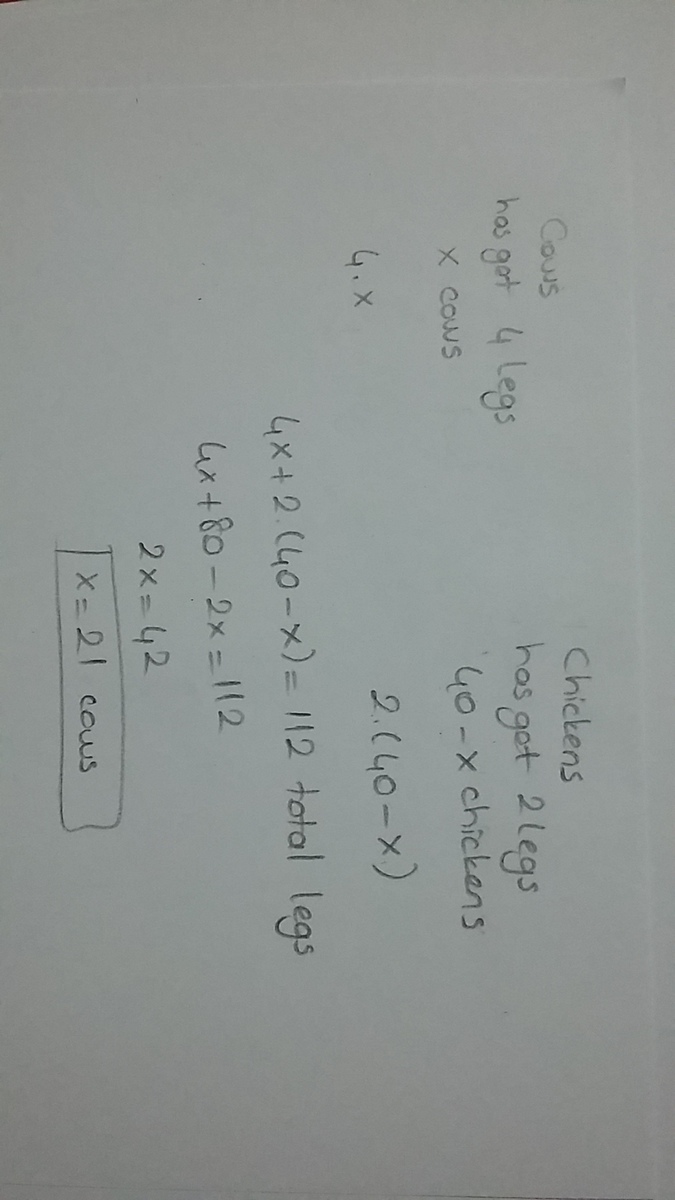 Cows
has got 4 legs
x cows
4.x
Chickens
has got 2 legs
40-x chickens
2.(40-x)
4x+2.(40-x)=112 total legs
4x+80-2x=112
2x=42
x=21 cows